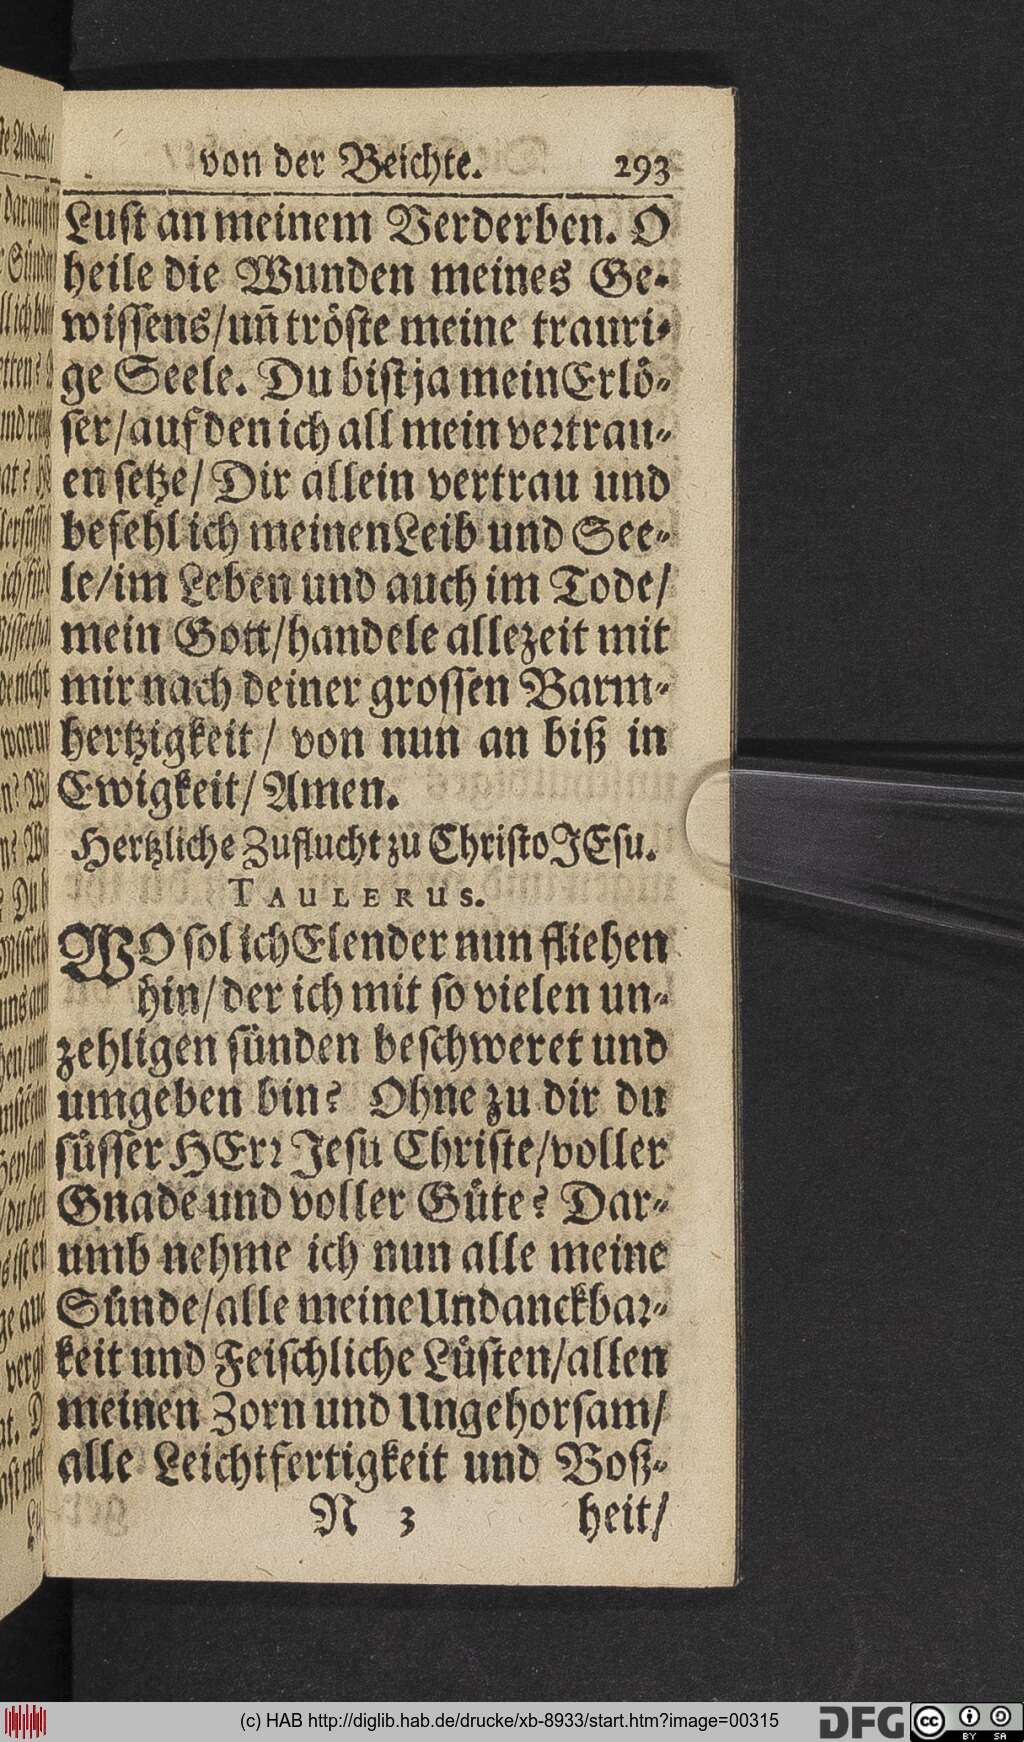 von der Beichte. 293
Lust an meinem Verderben. O
heile die Wunden meines Ge-
wissens/ uñ tröste meine trauri-
ge Seele. Du bist ja mein Erlö-
ser/ auf den ich all mein vertrau-
en setze/ Dir allein vertrau und
befehl ich meinen Leib und See-
le/ im Leben und auch im Tode/
mein Gott/ handele allezeit mit
mir nach deiner grossen Barm-
hertzigkeit/ von nun an biß in
Ewigkeit/ Amen.
Hertzliche Zuflucht zu Christo JEsu.
TAULERUS.
WO sol ich Elender nun fliehen
hin/ der ich mit so vielen un-
zehligen sünden beschweret und
umgeben bin? Ohne zu dir du
süsser HErr Jesu Christe/ voller
Gnade und voller Güte? Dar-
umb nehme ich nun alle meine
Sünde/ alle meine Undanckbar-
keit und Feischliche Lüsten/ allen
meinen Zorn und Ungehorsam/
alle Leichtfertigkeit und Boß-
N 3 heit/
(c) HAB http://diglib.hab.de/drucke/xb-8933/start.htm?image=00315
DFG
cc BY SA